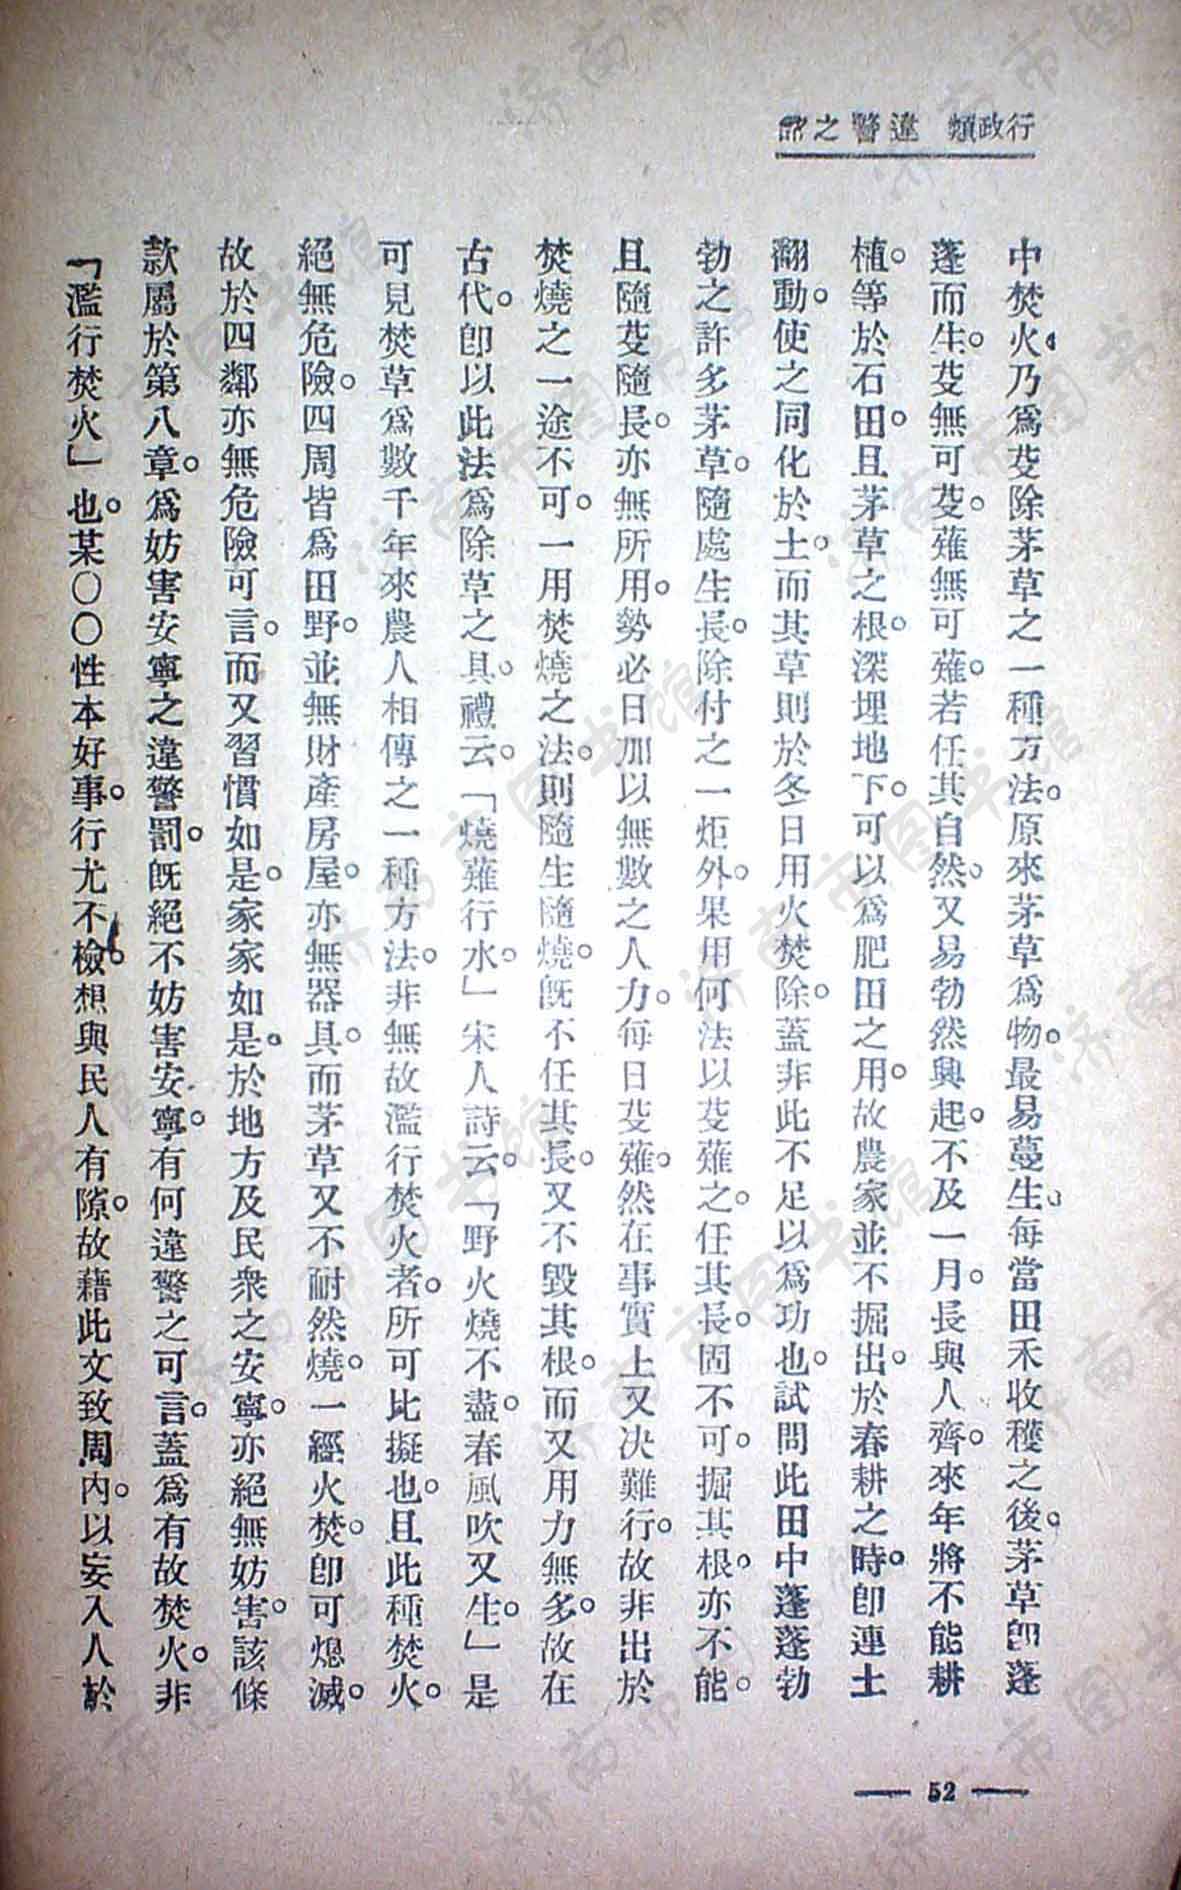 行政類 違警之部
中焚火。乃爲芟除茅草之一種方法。原來茅草爲物。最易蔓生。每當田禾收穫之後。茅草卽蓬
蓬而生。芟無可芟。薙無可薙。若任其自然。又易勃然興起。不及一月。長與人齊。來年將不能耕
植。等於石田。且茅草之根。深埋地下。可以爲肥田之用。故農家並不掘出。於春耕之時。卽連土
翻動。使之同化於土。而其草則於冬日用火焚除。蓋非此不足以爲功也。試問此田中蓬蓬勃
勃之許多茅草。隨處生長。除付之一炬外。果用何法以芟薙之。任其長。固不可。掘其根。亦不能。
且隨芟隨長。亦無所用。勢必日加以無數之人力。每日芟薙。然在事實上又決難行。故非出於
焚燒之一途不可。一用焚燒之法。則隨生隨燒。旣不任其長。又不毀其根。而又用力無多。故在
古代。卽以此法爲除草之具。禮云。「燒薙行水。」宋人詩云。「野火燒不盡。春風吹又生。」是
可見焚草爲數千年來農人相傳之一種方法。非無故濫行焚火者。所可比擬也。且此種焚火。
絕無危險。四周皆爲田野。並無財產房屋。亦無器具。而茅草又不耐然燒。一經火焚。卽可熄滅。
故於四鄰亦無危險可言。而又習慣如是。家家如是。於地方及民衆之安寧。亦絕無妨害。該條
款屬於第八章。爲妨害安寧之違警罰。旣絕不妨害安寧。有何違警之可言。蓋爲有故焚火。非
「濫行焚火」也。某〇〇性本好事。行尤不檢。想與民人有隙。故藉此文致周內。以妄入人於
52
济南市图书馆